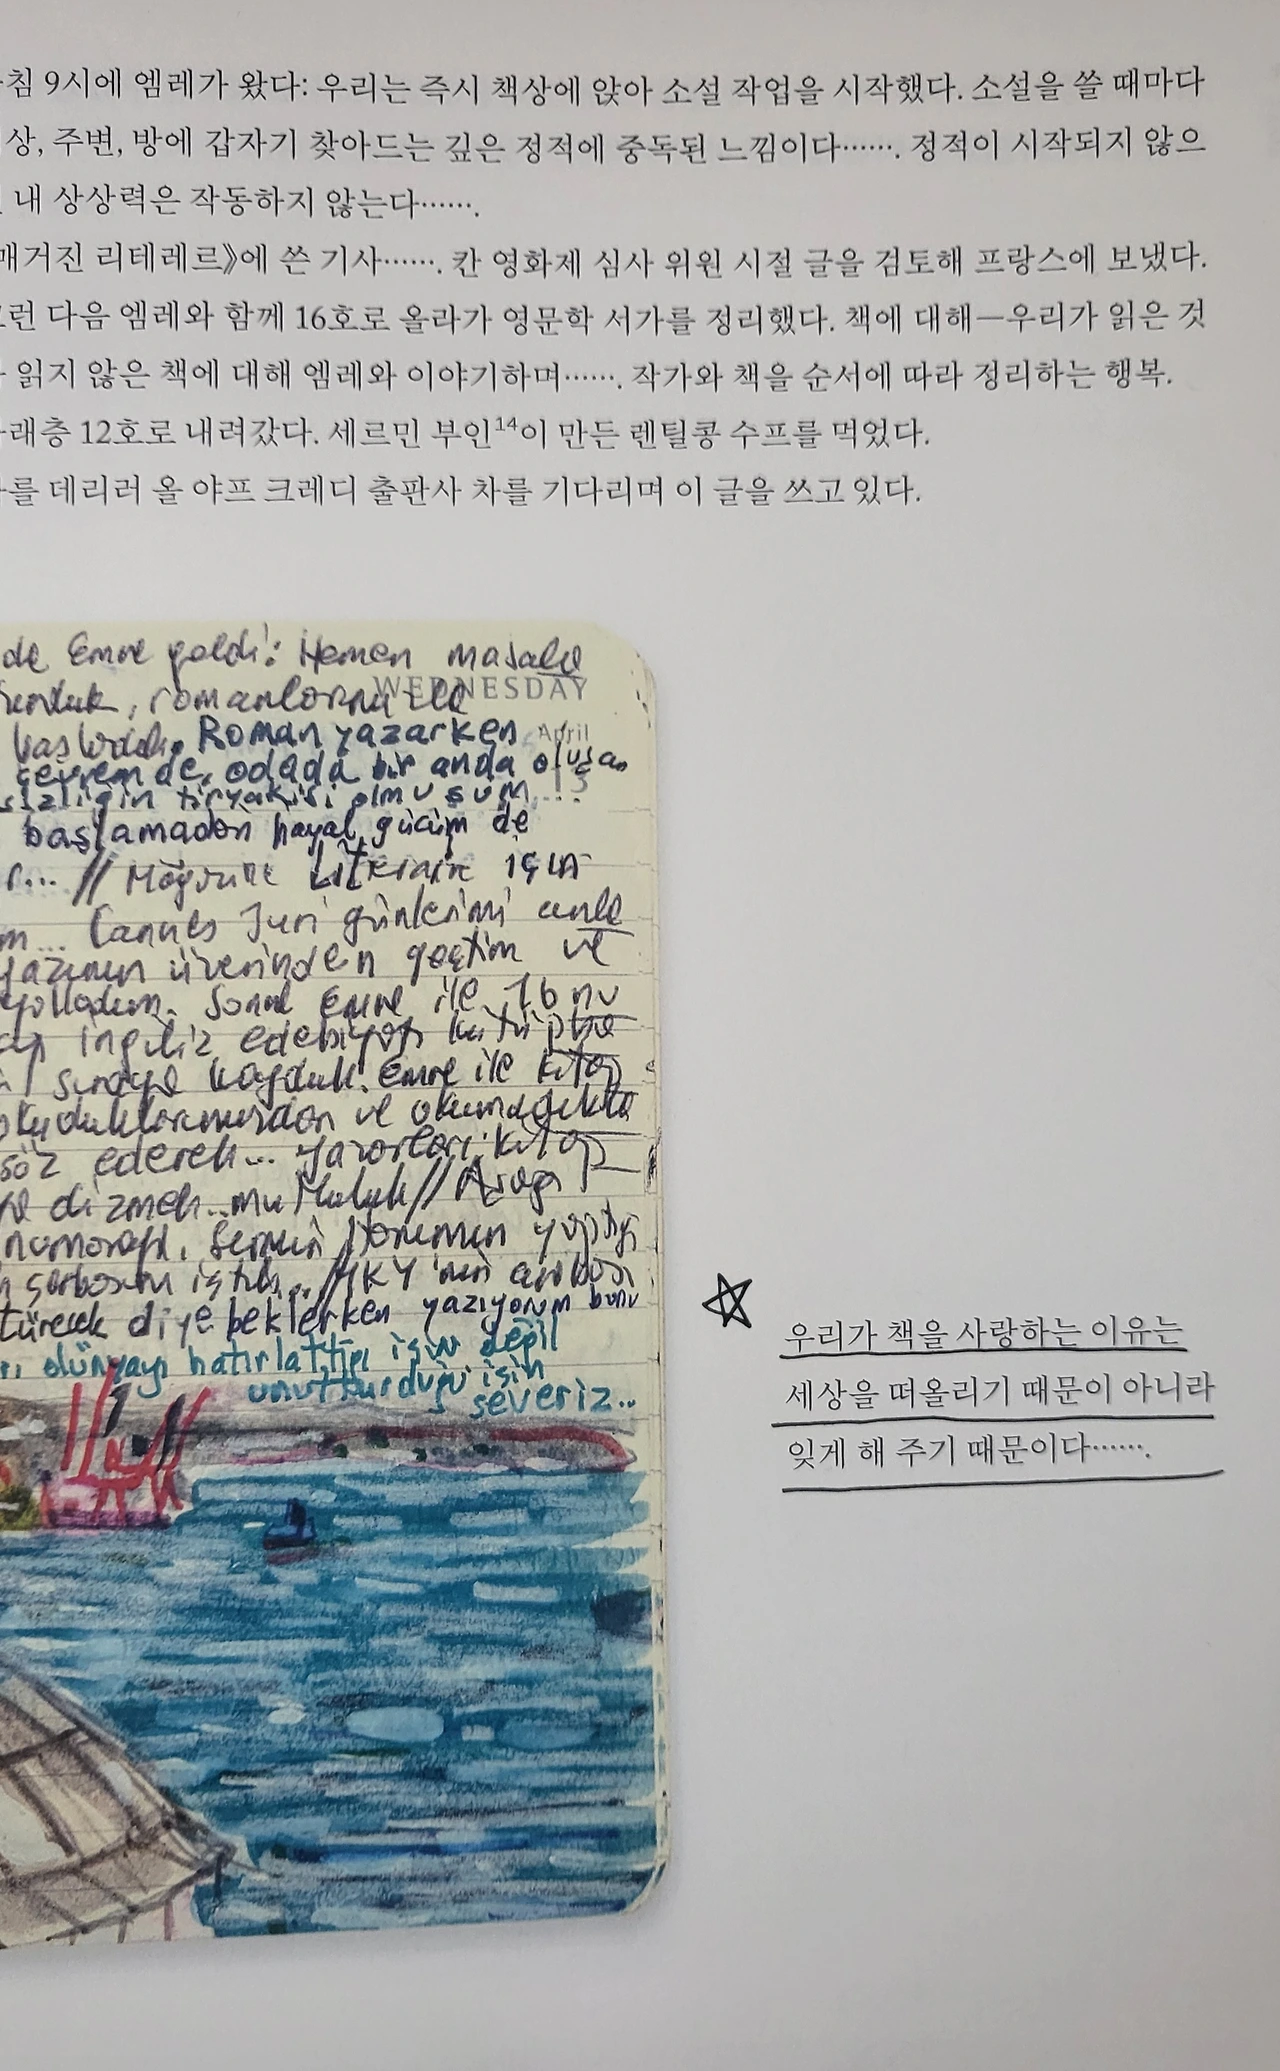 침 9시에 엠레가 왔다: 우리는 즉시 책상에 앉아 소설 작업을 시작했다. 소설을 쓸 때마다
상, 주변, 방에 갑자기 찾아드는 깊은 정적에 중독된 느낌이다……. 정적이 시작되지 않으
내 상상력은 작동하지 않는다…….
매거진 리테레르》에 쓴 기사……. 칸 영화제 심사 위원 시절 글을 검토해 프랑스에 보냈다.
런 다음 엠레와 함께 16호로 올라가 영문학 서가를 정리했다. 책에 대해—우리가 읽은 것
읽지 않은 책에 대해 엠레와 이야기하며……. 작가와 책을 순서에 따라 정리하는 행복.
래층 12호로 내려갔다. 세르민 부인14이 만든 렌틸콩 수프를 먹었다.
를 데리러 올 야프 크레디 출판사 차를 기다리며 이 글을 쓰고 있다.
de Emre geldi: Hemen masaya
WEDNESDAY
Roman yazarken
April
çevremde, odada bir anda oluşan
tiryakisi olmuşum...
13
başlamadan hayal gücüm de
// Magazine Literaire için
Cannes Juri günlerimi
yazının üzerinden geçtim ve
yolladım. Sonra Emre ile 16 nu
ingiliz edebiyatı
sıraya koyduk. Emre ile kitap
okuduklarımızdan ve
söz ederek... yazarları, kitap
dizmek.. mutluluk // Aşağı
Sermin Hanımın yaptığı
içtik.. // YKY'nin arabası
diye beklerken yazıyorum bunu
dünyayı hatırlattığı için değil
unutturduğu için
severiz..
우리가 책을 사랑하는 이유는
세상을 떠올리기 때문이 아니라
잊게 해 주기 때문이다…….